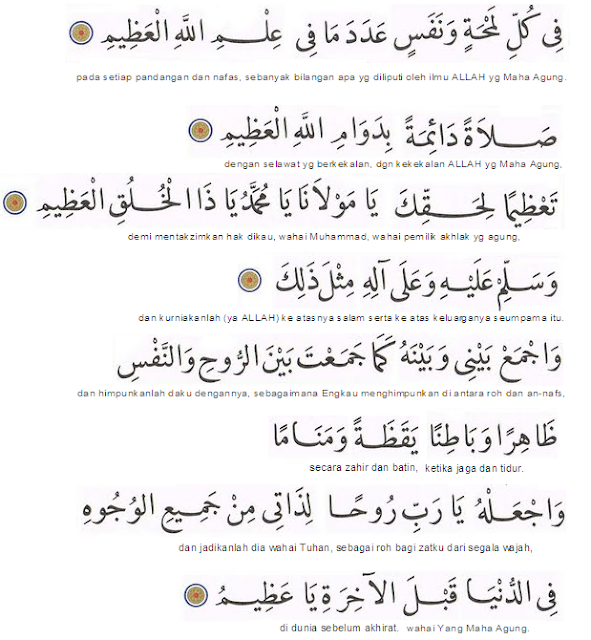 فِى كُلِّ لَمْحَةٍ وَنَفَسٍ عَدَدَ مَا فِى عِلْمِ اللَّهِ الْعَظِيمِ
pada setiap pandangan dan nafas, sebanyak bilangan apa yg diliputi oleh ilmu ALLAH yg Maha Agung.
صَلَاةً دَائِمَةً بِدَوَامِ اللَّهِ الْعَظِيمِ
dengan selawat yg berkekalan, dgn kekekalan ALLAH yg Maha Agung,
تَعْظِيمًا لِحَقِّكَ يَا مَوْلَانَا يَا مُحَمَّدُ يَا ذَا الْخُلُقِ الْعَظِيمِ
demi mentakzimkan hak dikau, wahai Muhammad, wahai pemilik akhlak yg agung,
وَسَلِّمْ عَلَيْهِ وَعَلَى آلِهِ مِثْلَ ذَلِكَ
dan kurniakanlah (ya ALLAH) ke atasnya salam serta ke atas keluarganya seumpama itu.
وَاجْمَعْ بَيْنِى وَبَيْنَهُ كَمَا جَمَعْتَ بَيْنَ الرُّوحِ وَالنَّفْسِ
dan himpunkanlah daku dengannya, sebagaimana Engkau menghimpunkan di antara roh dan an-nafs,
ظَاهِرًا وَبَاطِنًا يَقَظَةً وَمَنَامًا
secara zahir dan batin, ketika jaga dan tidur.
وَاجْعَلْهُ يَا رَبِّ رُوحًا لِذَاتِى مِنْ جَمِيعِ الْوُجُوهِ
dan jadikanlah dia wahai Tuhan, sebagai roh bagi zatku dari segala wajah,
فِى الدُّنْيَا قَبْلَ الْآخِرَةِ يَا عَظِيمُ
di dunia sebelum akhirat. wahai Yang Maha Agung.